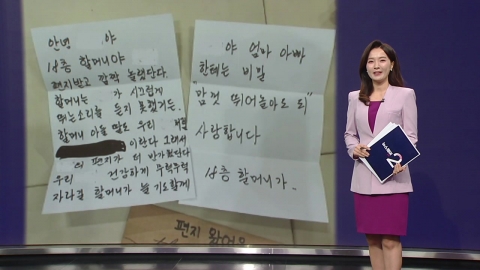 안녕 야
상층 할머니야
편지받고 깜짝 놀랬단다
할머니는 가 시끄럽게
뛰는소리를 듣지 못했거든.
할머니 아들 말도 우리
이란다 그래서
의 편지가 더 반가웠단다
우리 건강하게 무럭무럭
자라길 할머니가 늘 기도할게
야 엄마 아빠
한테는 비밀
"맘껏 뛰어놀아도 돼"
사랑합니다
상층 할머니가.
편지 왔어요
2